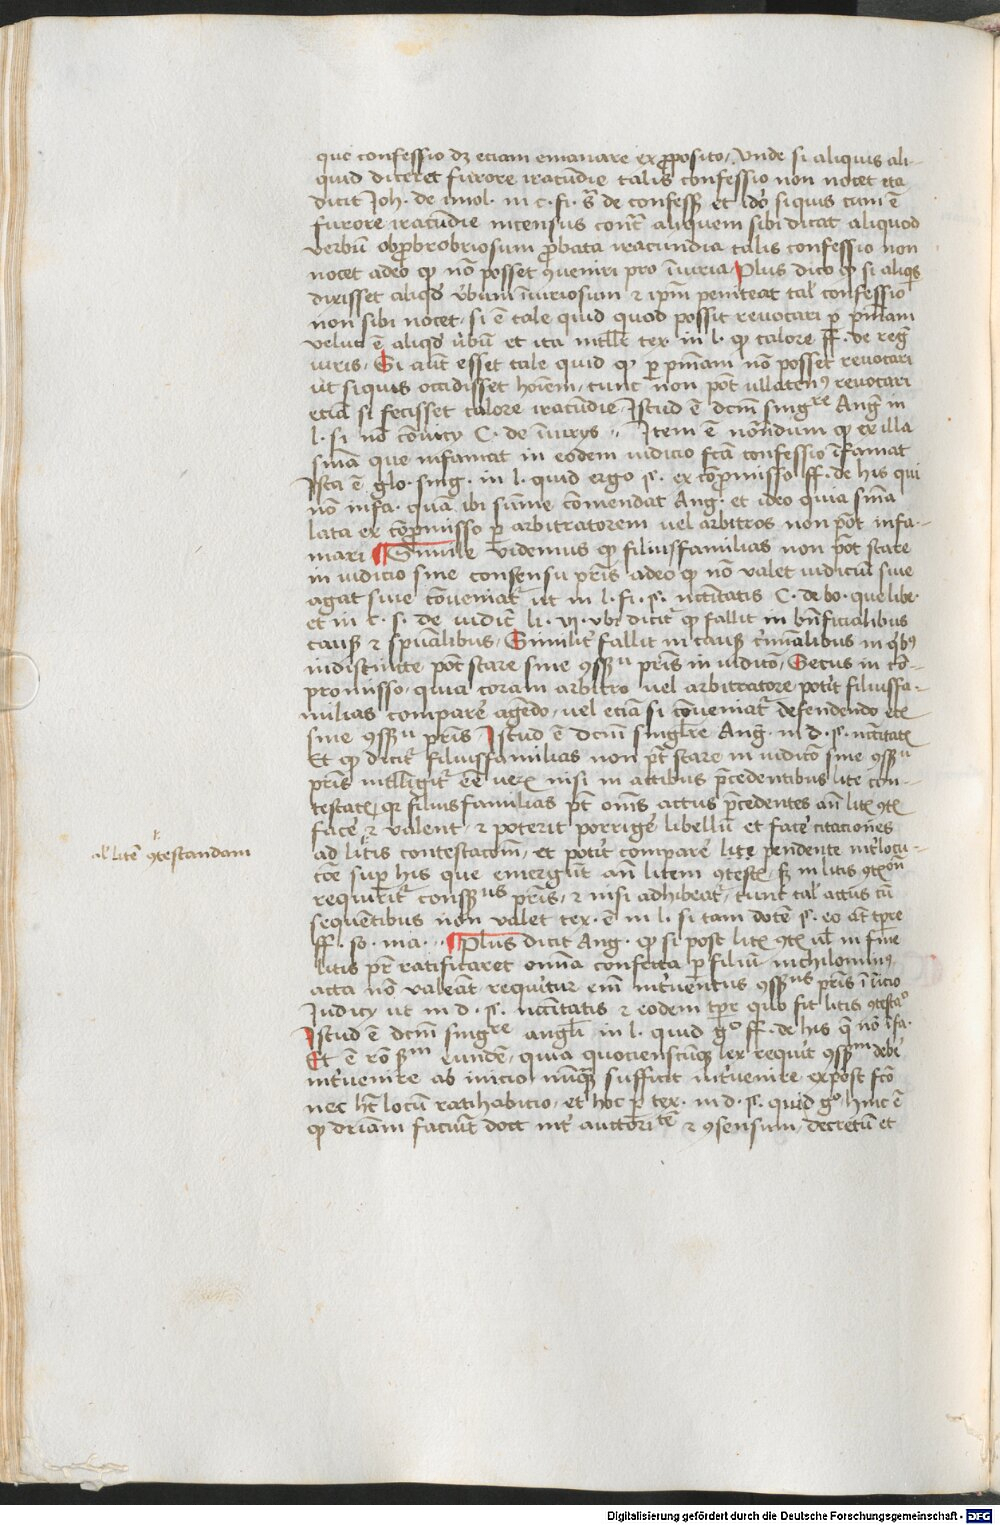 que confessio dꝫ eciam emanare ex ꝓposito / Vnde si aliquis ali-
quid diceret furore iracūdie talis confessio non nocet ita
dicit Joh. de imol. in c. fi. de confess et idō siquis cum ē
furore iracūdie incensus contᷓ aliquem sibi dicat aliquod
verbū obprobriosum ꝓbata iracundia talis confessio non
nocet adeo ꝙ nō posset ꝯueniri pro iniuria / Plus dico ꝙ si aliqͥs
dixisset aliqd̕ v̕bum iniuriosum ⁊ ip̄m peniteat tal̕ confessio
non sibi nocet / si ē tale quid quod possit reuocari ꝑ pn̄iam
velut ē aliqd̕ v̕bū et ita intll̕r tex in l. ꝙ calore ff. de reg̕
iuris / Si aūt esset tale quid ꝙ ꝑ pn̄iam nō posset reuocari
ut siquis occidisset hoīem / tunc non pōt ullatenꝰ reuocari
eciā si fecisset calore iracūdie / Istud ē dcm̄ singre Ang̕ in
l. si nō cōuicij C. de iniurijs // Item ē nōndum ꝙ ex illa
sn̄ia que infamat in eodem iudicio fcā confessio īfamat
Ista ē glo. sing. in l. quid ergo §. ex cōpromisso ff. de his qui
nō infa. quā ibi sūme cōmendat Ang. et ideo quia sn̄ia
lata ex cōpromisso ꝑ arbitratorem uel arbitros non pōt infa-
mari ¶ Simile videmus ꝙ filiusfamilias non pōt stare
in iudicio sine consensu pr̄is adeo ꝙ nō valet iudiciū siue
agat siue cōueniat᷑ ut in l. fi. §. necitatis C. de bo. que libe.
et in c. fi. de iudic̄ li. vj. vbi dicit᷑ ꝙ fallit in bn̄ficialibus
cauẜ ⁊ spūalibus / Similit̕ fallit in cauẜ cī̄mīalibus in qͥbꝰ
indistincte pōt stare sine ꝯsensu pr̄is in iudicō / Secus in cō-
promisso / quia coram arbitro uel arbitratore potit filiusfa-
milias comparē agēdo / uel etiā si cōueniat᷑ defendendo
sine ꝯsensu pr̄is / Istud ē dcm̄ singlare Ang̕ in d. §. necitatꝭ
Et ꝙ dicit᷑ filiusfamilias non pt̄ stare in iudicō sine ꝯsensu
pr̄is intlligit᷑ eē verū nisi in actibus pr̄cedentibus lite con-
testatꝫ / qꝛ filiusfamilias pt̄ oīs actus pr̄cedentes an̄ litꝫ ꝯtꝫ
facē ⁊ valent / ⁊ poterit porrigē libellū et facē citaciones
ad litis contestacōm / et potit comparē lite pendente int̕locu-
cōe sup̄ his que emergūt an̄ litem ꝯtestꝫ / ẜ in litis ꝯtxōn
requirit᷑ consensus pr̄is / ⁊ nisi adhibeat᷑ / tunc tal̕ actus cū
sequētibus non valet tex. ē in l. si tam dotē §. eo āt tp̄re
ff. so. ma. ·· ¶ Plus dicit Ang. ꝙ si post litꝫ ꝯtꝫ ul̕ in fine
litis pr̄ ratificaret omnia confecta ꝑ filiū / nichilominꝰ
acta nō valeāt requirtur em̄ int̕uentus ꝯsensus pr̄is ī īicio
Iudicij ut in d. §. necitatis ⁊ eodem tp̄re quo fit litis ꝯtestaᵒ
Istud ē dcm̄ singre angli in l. quid gᵒ ff. de his qͥ nō īfa.
Et ē rō eundē / quia quocienscūqꝫ lex requit ꝯsensū debē
int̕uenire ab inicio nūqꝫ sufficit int̕uenire expost fcō
nec ht̄ locū ratihabicio / et hoc ꝑ tex. in d. §. quid gᵒ / hinc ē
ꝙ driam faciūt doct int̕ auctoritē ⁊ ꝯsensum / decretū et
al̕ litē ꝯtestandam
Digitalisierung gefördert durch die Deutsche Forschungsgemeinschaft - DFG